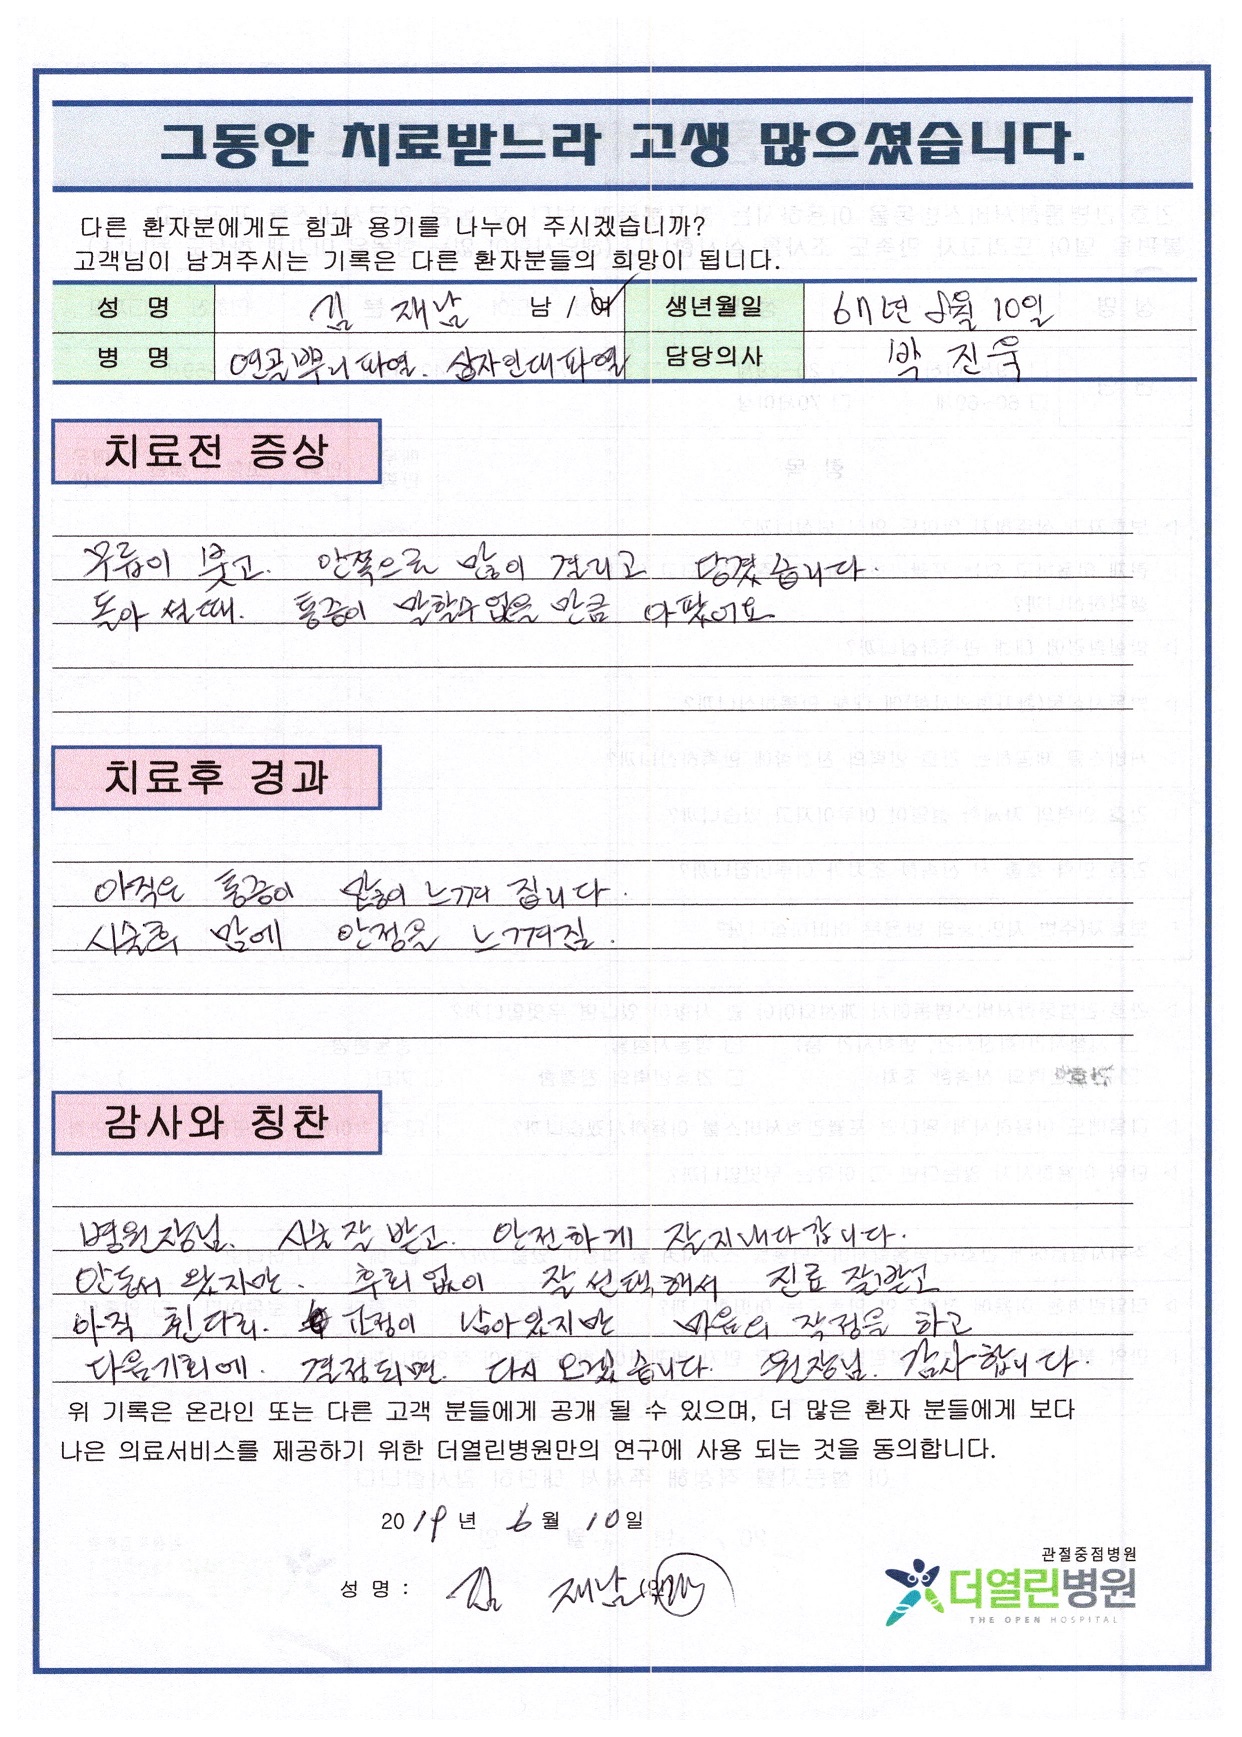 그동안 치료받느라 고생 많으셨습니다.
다른 환자분에게도 힘과 용기를 나누어 주시겠습니까?
고객님이 남겨주시는 기록은 다른 환자분들의 희망이 됩니다.
성 명 김 재남 남 / 여 생년월일 67년 8월 10일
병 명 연골뿌리파열. 십자인대파열 담당의사 박 진욱
치료전 증상
무릎이 붓고. 안쪽으로 많이 결리고 당겼습니다.
돌아 설때. 통증이 말할수없을 만큼 아팠어요
치료후 경과
아직은 통증이 많이 느껴 집니다.
시술후 맘에 안정을 느껴짐.
감사와 칭찬
병원장님. 시술 잘 받고. 안전하게 잘지내다갑니다.
안동서 왔지만. 후회 없이 잘 선택해서 진료 잘받고
아직 휜다리. 교정이 남아있지만 마음의 작정을 하고
다음기회에. 결정되면. 다시 오겠습니다. 원장님. 감사합니다.
위 기록은 온라인 또는 다른 고객 분들에게 공개 될 수 있으며, 더 많은 환자 분들에게 보다
나은 의료서비스를 제공하기 위한 더열린병원만의 연구에 사용 되는 것을 동의합니다.
2019 년 6 월 10 일
성 명 : 김 재남
관절중점병원
더열린병원
THE OPEN HOSPITAL